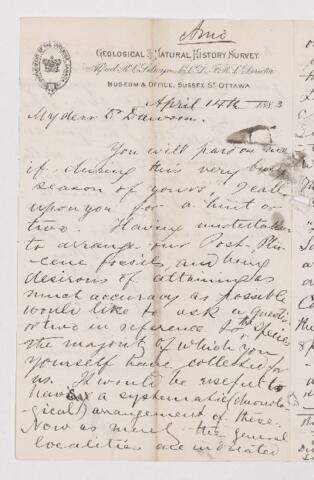 Ami
GEOLOGICAL & NATURAL HISTORY SURVEY.
Alfred R. C. Selwyn, L.L.D., F.R.S. Director
MUSEUM & OFFICE, SUSSEX ST. OTTAWA
April 14th 1883
My dear Dr Dawson,
You will pardon me
if during this very busy
season of yours, I call
upon you for a hint or
two. Having undertaken
to arrange our Post-Plio-
cene fossils, and being
desirous of attaining as
much accuracy as possible
would like to ask a question
or two in reference to the species
the majority of which you
yourself have collected for
us. It would be useful to
have a systematic (chronolo-
gical) arrangement of these.
Now as merely the general
localities are indicated